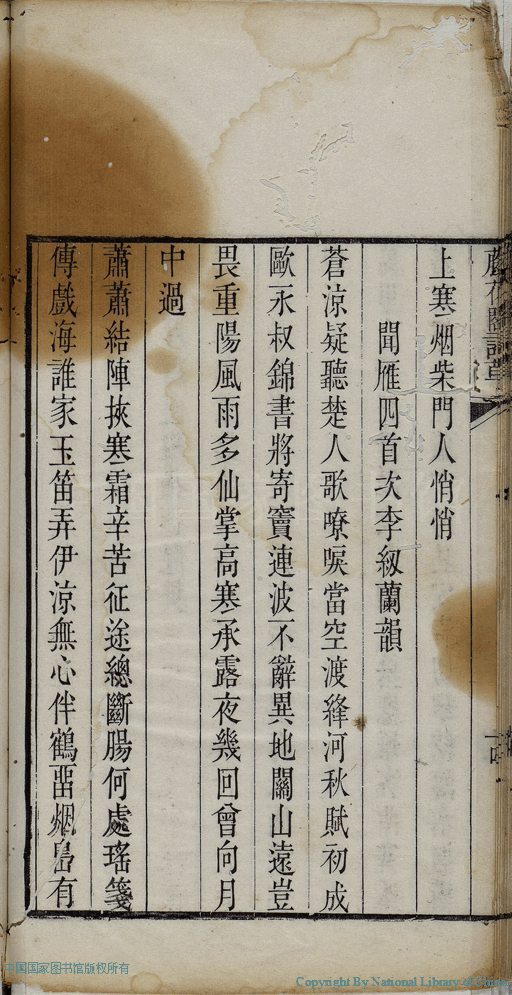 上寒烟柴門人悄悄
聞雁四首次李紉蘭韻
蒼涼疑聽楚人歌嘹唳當空渡絳河秋賦初成
歐永叔錦書將寄竇連波不辭異地關山遠豈
畏重陽風雨多仙掌高寒承露夜幾回曾向月
中過
蕭蕭結陣挾寒霜辛苦征途總斷腸何處瑤箋
傳戲海誰家玉笛弄伊涼無心伴鶴畱烟島有
中国国家图书馆版权所有
Copyright By National Library of China